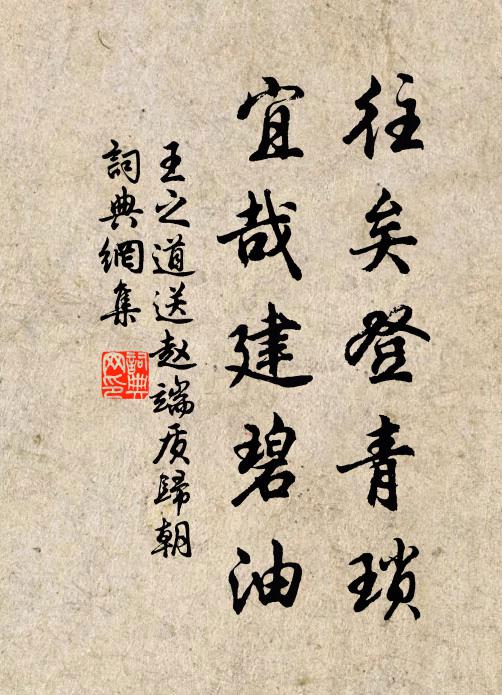 往矣登青瑣
宜哉建碧油
王之道送赵端质歸朝
詞典網集
詞典网印